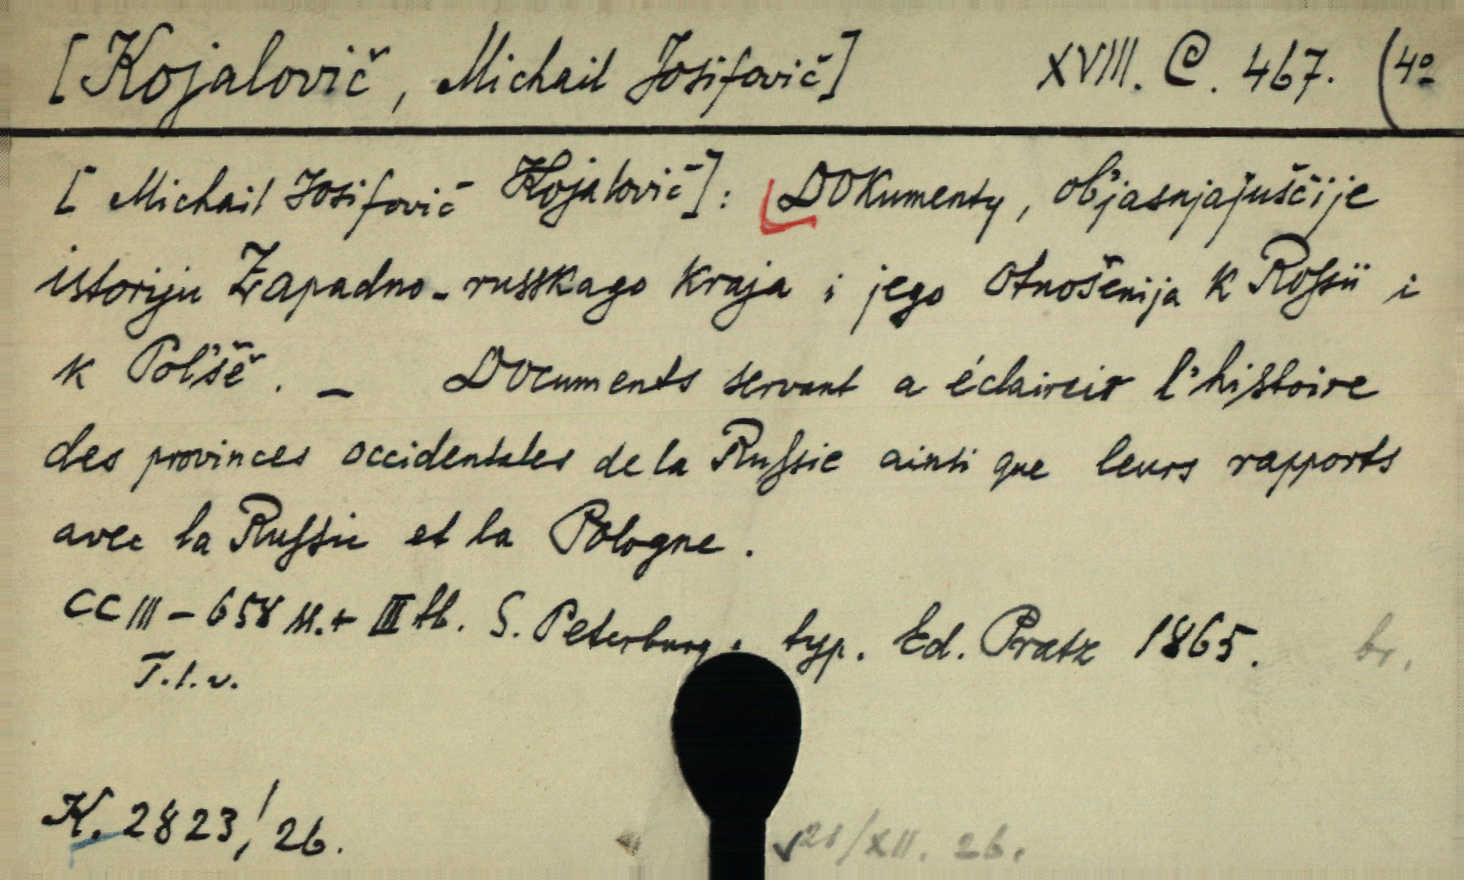 [Kojalovič, Michail Josifovič] XVIII. C. 467. (4º
[Michail Josifovič Kojalovič]: Dokumenty, ob'jasnjajuščije
istoriju Zapadno-russkago kraja i jego otnošenija k Rossii i
k Pol'šě. — Documents servant a éclaircir l'histoire
des provinces occidentales de la Russie ainsi que leurs rapports
avec la Russie et la Pologne.
CCIII-658 ss.+ III tb. S. Peterburg, typ. Ed. Pratz 1865. br.
T.l.v.
K. 2823/26.
21/XII. 26.